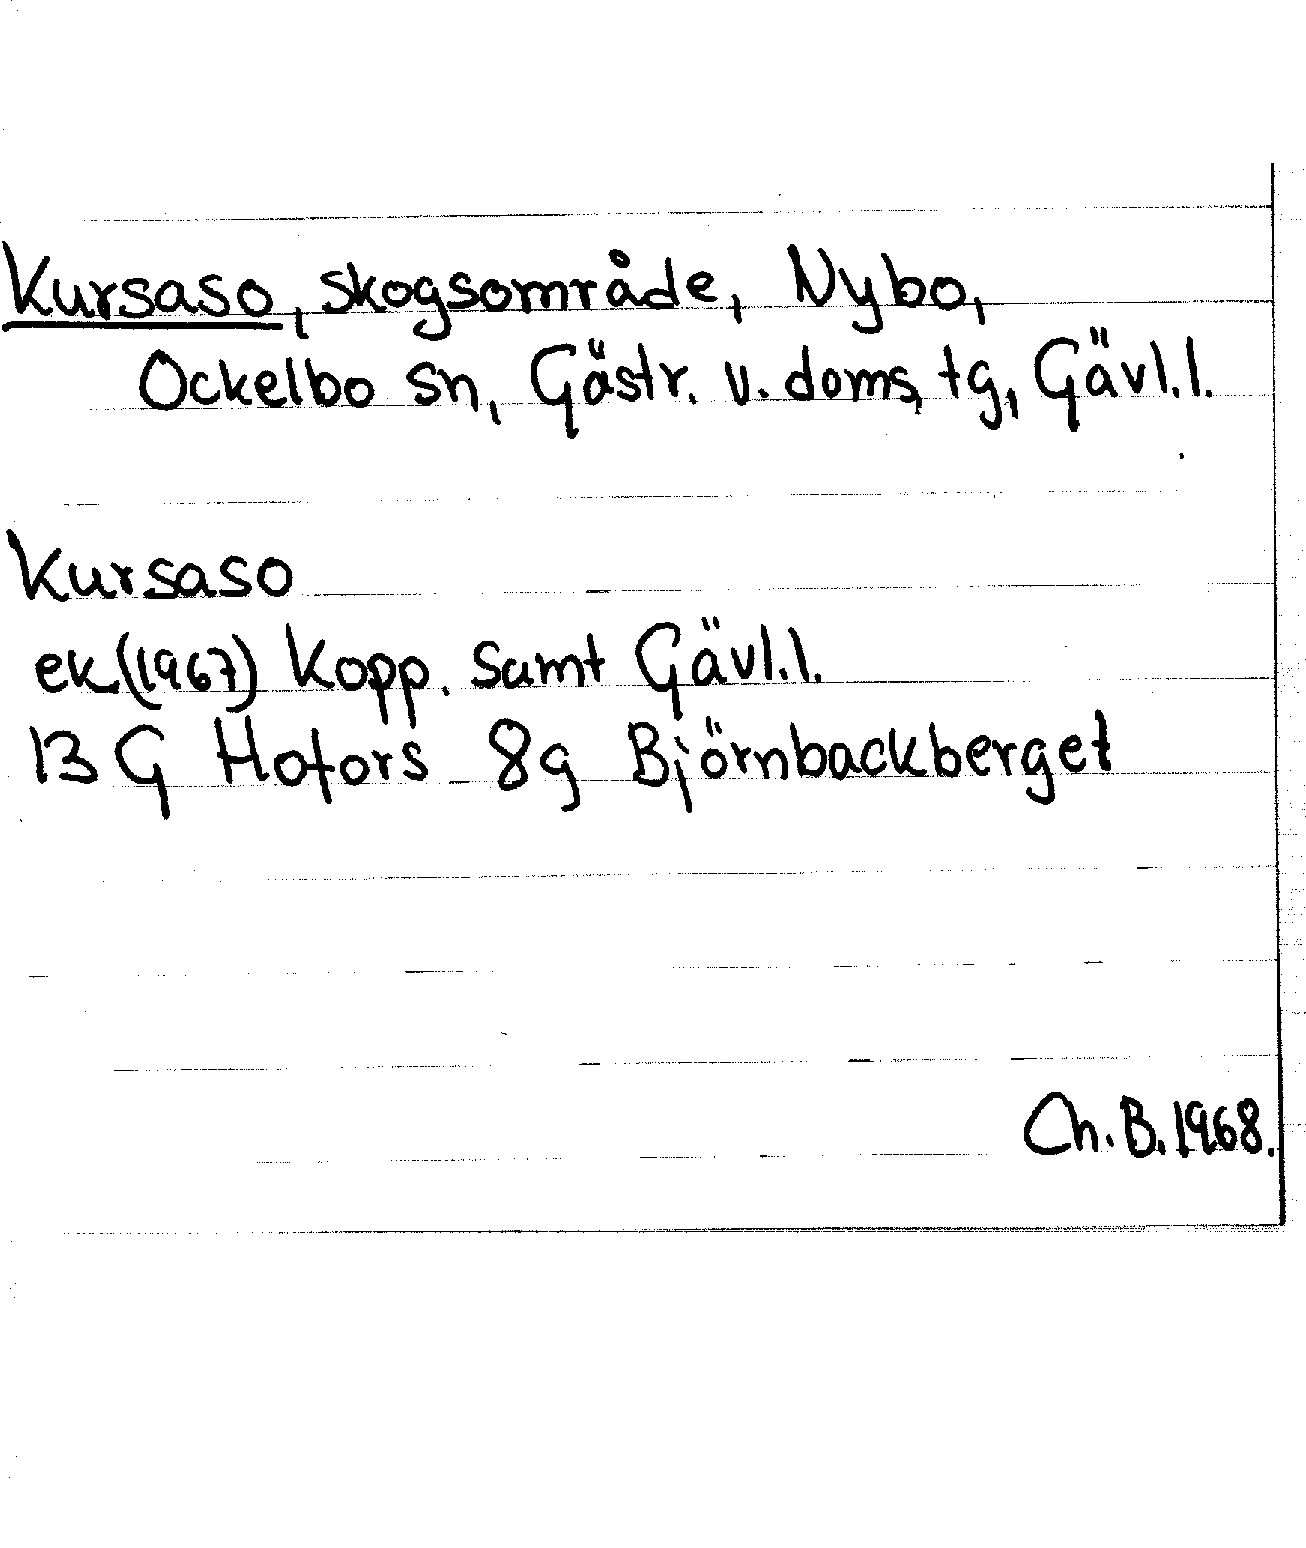 Kursaso, skogsområde, Nybo,
Ockelbo sn, Gästr. v. doms, tg, Gävl.l.
Kursaso
ek(1967) Kopp. samt Gävl.l.
13 G Hofors 8g Björnbackberget
Ch.B.1968.